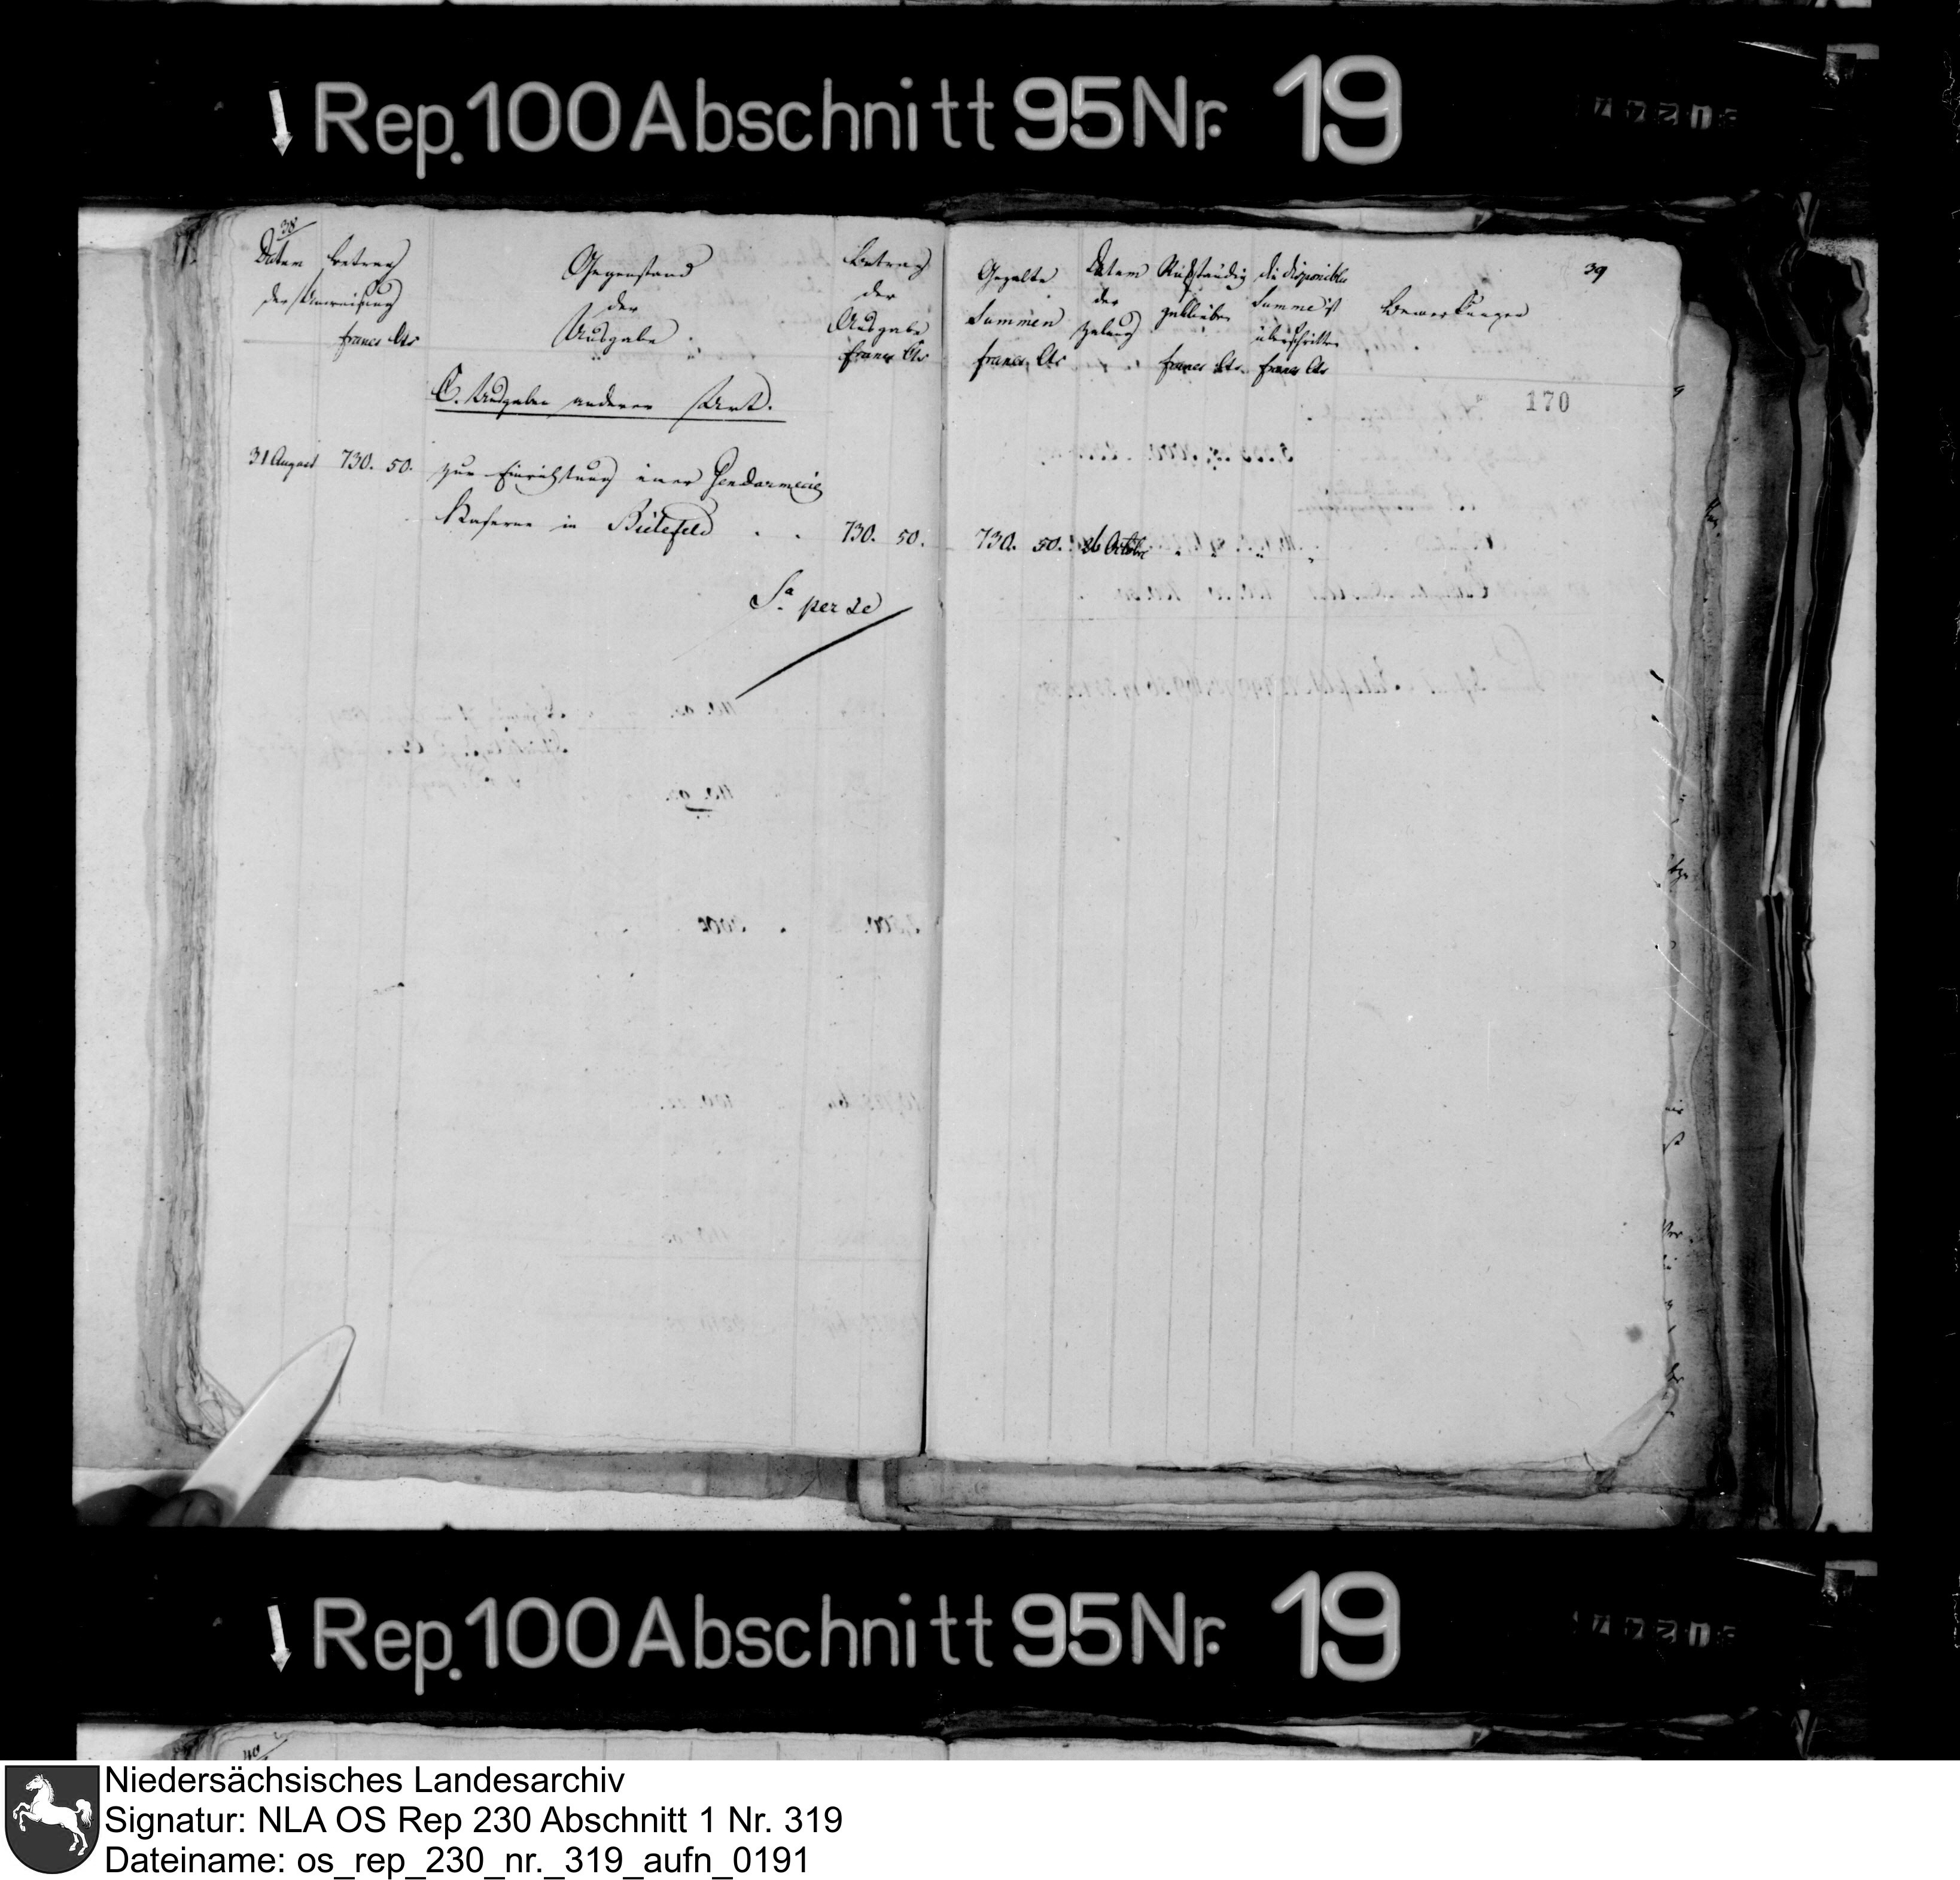 Rep. 100 Abschnitt 95 Nr. 19
38
Datum Betrag
der Anweisung
francs Cts
Gegenstand
der
Ausgabe
Betrag
der
Ausgabe
francs Cts
C. Ausgaben anderer Art.
31 August 730. 50. zur Einrichtung einer Gendarmerie
Kaserne in Bielefeld . . 730. 50.
Sa. per se
39
Gezalte
Summen
francs Cts
Datum
der
Zalung
Rückständig
geblieben
francs Cts
die disponible
Summe ist
überschritten
francs Cts
Bemerkungen
170
730. 50. 26 October
Rep. 100 Abschnitt 95 Nr. 19
40
Niedersächsisches Landesarchiv
Signatur: NLA OS Rep 230 Abschnitt 1 Nr. 319
Dateiname: os_rep_230_nr._319_aufn_0191